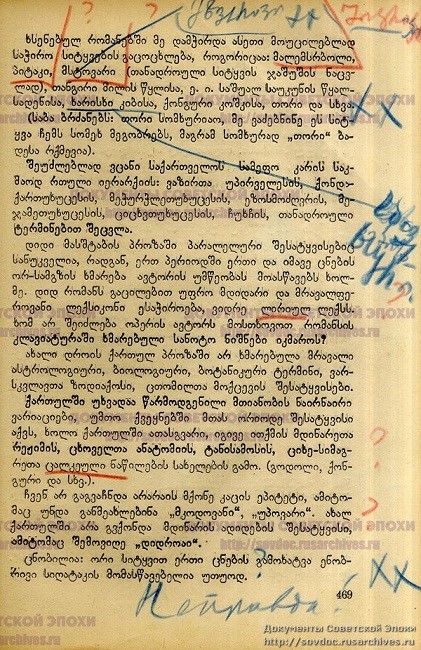 ხსენებულ რომანებში მე დამჭირდა ასეთი მოუცილებლად
საჭირო სიტყვების გაცოცხლება, როგორიცაა: მალემსრბოლი,
პიტაკი, მსტოვარი (თანადროული სიტყვის ჯაშუშის ნაცვ-
ლად), თანგირი მილის წყლისა, ე. ი. საშუალ საუკუნის წყალ-
სადენისა, ხარისხი კიბისა, ქონგური კოშკისა, თორი და სხვა.
(საბა ბრძანებს: თორი სომხურიათ, მე ვაძებნინე ეს სიტ-
ყვა ჩემს სომეხ მეგობრებს, მაგრამ სომხურად „თორი“ ბა-
დესა რქმევია).
შეუძლებლად ვცანი საქართველოს სამეფო კარის საკ-
მაოდ რთული იერარქიის: ვაზირთა უპირველესის, ქონდა-
ქართუხუცესის, მეჭურჭლეთუხუცესის, ეზოსმოძღვრის, მე-
ჯამეთუხუცესის, ციცხვთუხუცესის, ჩუხჩის, თანადროული
ტერმინებით შეცვლა.
დიდი მასშტაბის პროზაში პარალელური შესატყვისებიც
სანუკველია, რადგან, ერთ პერიოდში ერთი და იმავე ცნების
ორ-სამგზის ხმარება ავტორის უმწეობას მოასწავებს ხოლ-
მე. დიდ რომანს გაცილებით უფრო მდიდარი და მრავალფე-
როვანი ლექსიკონი ესაჭიროება, ვიდრე ლირიულ ლექსს.
ხომ არ შეიძლება ოპერის ავტორს მოსთხოვოთ რომანსის
კლავიატურაში ხმარებული სანოტო ნიშნები იკმაროს?
ახალი დროის ქართულ პროზაში არ ხმარებულა მრავალი
ასტროლოგიური, ბიოლოგიური, ბოტანიკური ტერმინი, ვარ-
სკვლავთა ზოდიაქოსი, ცთომილთა მოქცევის შესატყვისები.
ქართულში უხვადაა წარმოდგენილი მთიანობის ნაირნაირი
ვარიაციები, უმთო ქვეყნებში მათ ორიოდე შესატყვისი
აქვს, ხოლო ქართულში ათასგვარი, იგივე ითქმის მდინარეთა
რეჟიმის, ცხოველთა ანატომიის, ტანისამოსის, ციხე-სიმაგ-
რეთა ცალკეული ნაწილების სახელების გამო. (გოდოლი, ქონ-
გური და სხვ.).
ჩვენ არ გაგვაჩნდა არარაის მქონე კაცის ეპიტეტი, ამიტო-
მაც უნდა განმეახლებინა „მკოდოვანი“, „უპოვარი“. ახალ
ქართულში არ გვქონდა მდინარის ადიდების შესატყვისი,
ამიტომაც შემოვიდე „დიდროაი“.
ცნობილია: ორი სიტყვით ერთი ცნების გამოხატვა ენობ-
რივი სიღატაკის მომასწავებელია უთუოდ.
Неправда!
469
Документы Советской Эпохи
http://sovdoc.rusarchives.ru